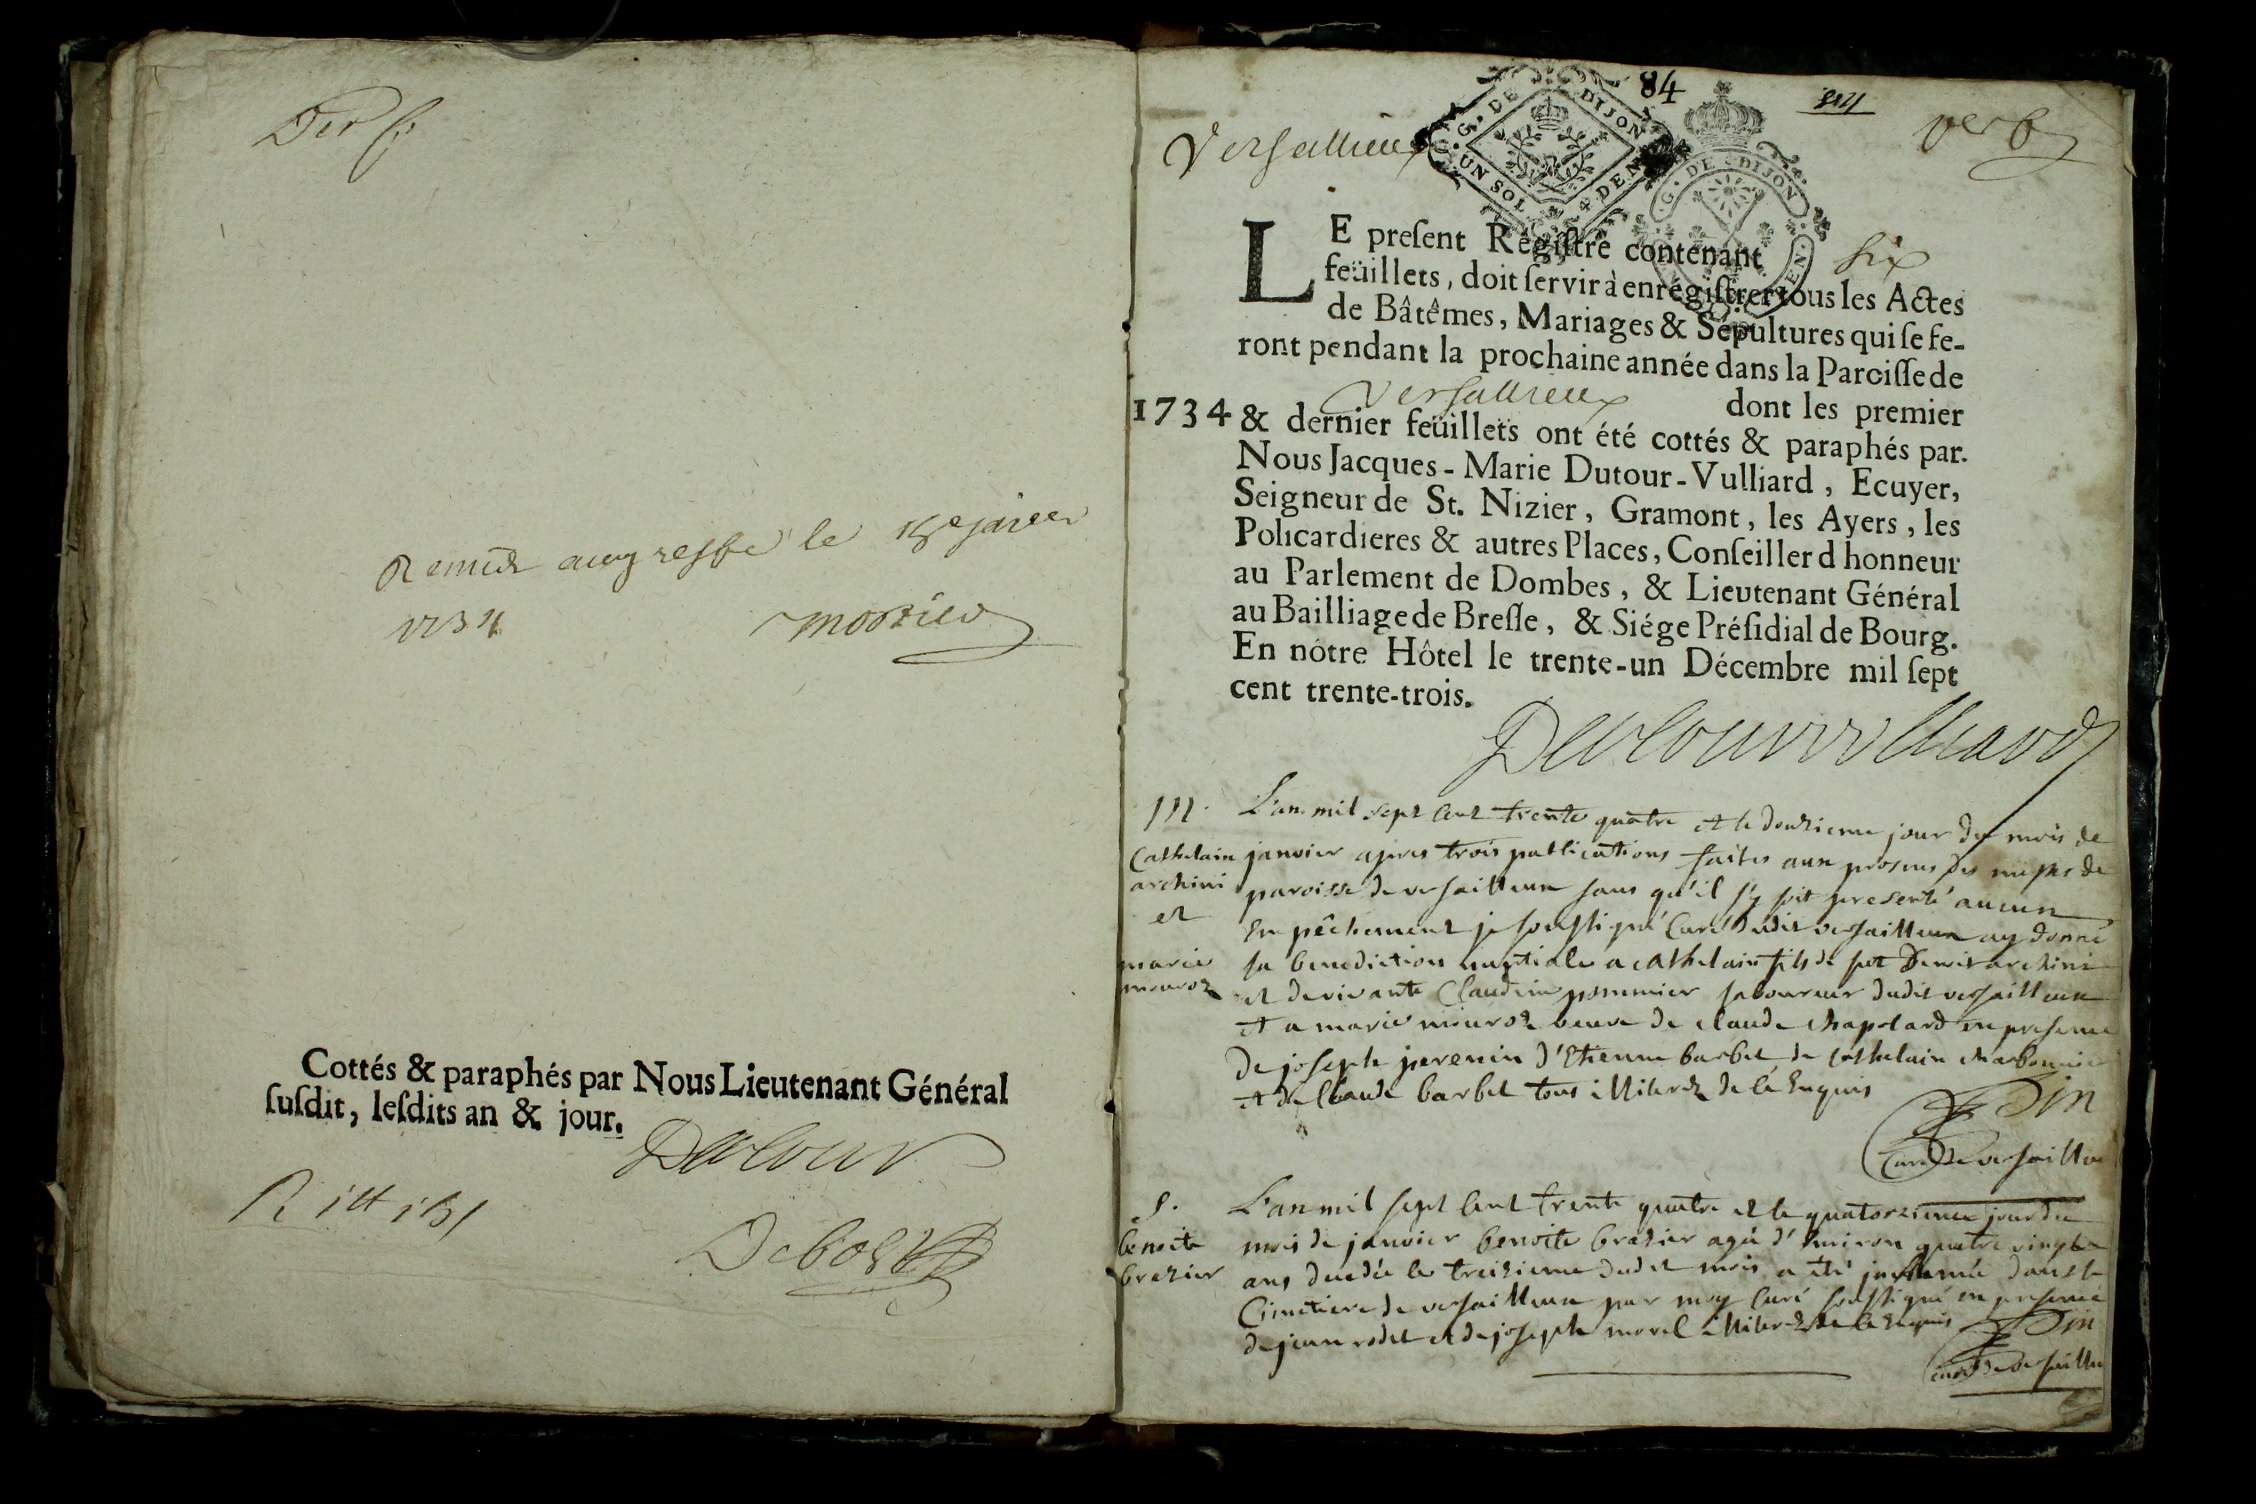 Remis au gresse le 15e janvier
1734 mortier
Cottés & paraphés par Nous Lieutenant Général
ſuſdit, leſdits an & jour.
Dutour
Debost
84
Versallieux
G. DE DIJON
UN SOL 4 DEN
G. DE DIJON
LE preſent Régiſtre contenant six
feüillets, doit ſervir à enrégiſtrer tous les Actes
de Bâtêmes, Mariages & Sépultures qui ſe fe-
ront pendant la prochaine année dans la Paroiſſe de
Versallieux dont les premier
1734 & dernier feüillets ont été cottés & paraphés par
Nous Jacques-Marie Dutour-Vulliard, Ecuyer,
Seigneur de St. Nizier, Gramont, les Ayers, les
Policardieres & autres Places, Conſeiller d honneur
au Parlement de Dombes, & Lieutenant Général
au Bailliage de Breſſe, & Siége Préſidial de Bourg.
En nôtre Hôtel le trente-un Décembre mil ſept
cent trente-trois.
Dutourvulliard
m. L'an mil sept cent trente quatre et le douzieme jour du mois de
Cathelain janvier apres trois publications faites aux prosnes des messes de
archini paroisse de versailleux sans qu'il s'y soit presenté aucun
et empêchement je soussigné Curé dudit versailleux ay donné
marie la benediction nuptiale a cathelain fils de fut Denis archini
mouroz et de vivante Claudine pommier laboureur dudit versailleux
et a marie mouroz veuve de claude chapelard en presence
de joseph perenin d'Etienne barbet de cathelain charbonnier
et de Claude barbet tous illiterez de ce enquis
Curé de versailleux
S. L'an mil sept cent trente quatre et le quatorzieme jour du
benoite mois de janvier benoite brazier agée d'environ quatre vingts
brazier ans decedée le treizieme dudit mois a été inhumée dans le
Cimetiere de versailleux par moy curé soussigné en presence
de jean rodet et de joseph morel illiterez de ce enquis
curé de versailleux